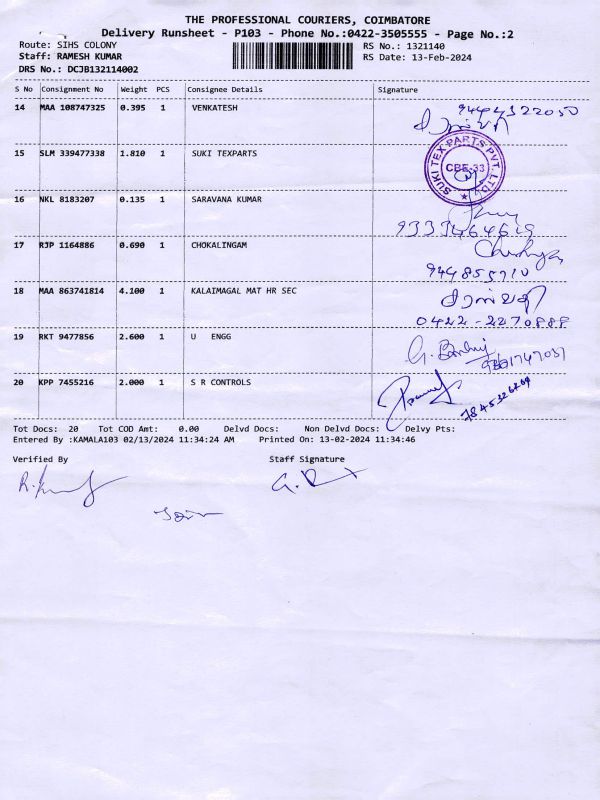 THE PROFESSIONAL COURIERS, COIMBATORE
Delivery Runsheet - P103 - Phone No.:0422-3505555 - Page No.:2
Route: SIHS COLONY RS No.: 1321140
Staff: RAMESH KUMAR RS Date: 13-Feb-2024
DRS No.: DCJB132114002
S No Consignment No Weight PCS Consignee Details Signature
14 MAA 108747325 0.395 1 VENKATESH
15 SLM 339477338 1.810 1 SUKI TEXPARTS
SUKI TEX PARTS PVT. LTD. CBE-33
16 NKL 8183207 0.135 1 SARAVANA KUMAR
17 RJP 1164886 0.690 1 CHOKALINGAM
944855710
18 MAA 863741814 4.100 1 KALAIMAGAL MAT HR SEC
0422-2270888
19 RKT 9477856 2.600 1 U ENGG
20 KPP 7455216 2.000 1 S R CONTROLS
Tot Docs: 20 Tot COD Amt: 0.00 Delvd Docs: Non Delvd Docs: Delvy Pts:
Entered By :KAMALA103 02/13/2024 11:34:24 AM Printed On: 13-02-2024 11:34:46
Verified By Staff Signature